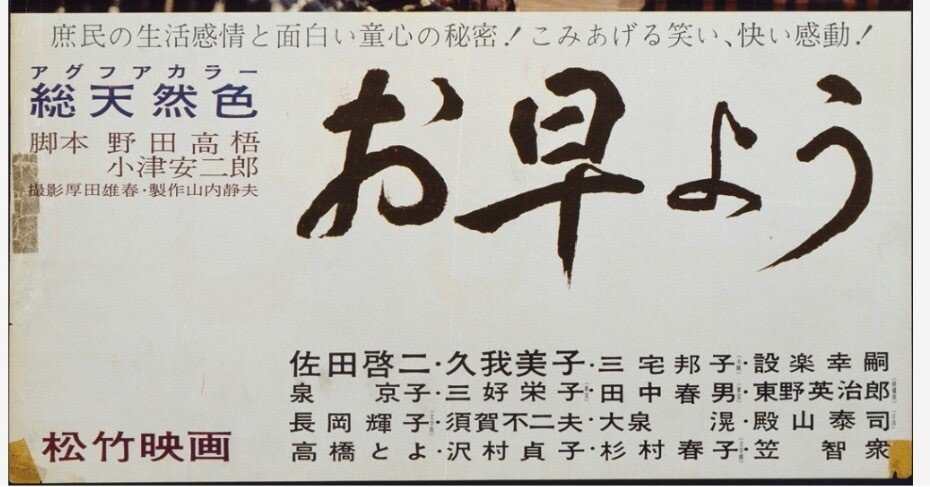 庶民の生活感情と面白い童心の秘密！こみあげる笑い、快い感動！
アグファカラー
総天然色
脚本 野田高梧
小津安二郎
撮影厚田雄春・製作山内静夫
お早よう
佐田啓二・久我美子・三宅邦子・設楽幸嗣
泉京子・三好栄子・田中春男・東野英治郎
長岡輝子・須賀不二夫・大泉滉・殿山泰司
高橋とよ・沢村貞子・杉村春子・笠智衆
松竹映画